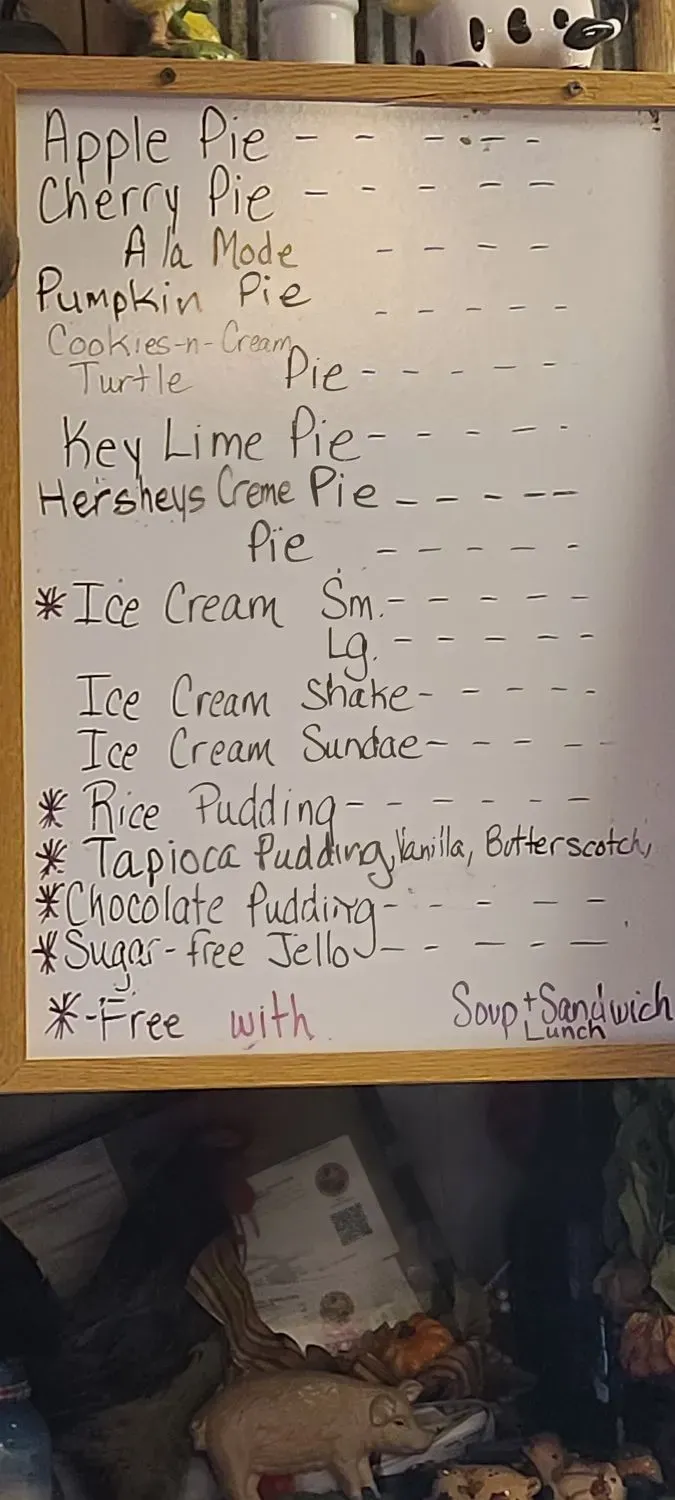 Apple Pie - - - - - -
Cherry Pie - - - - -
A la Mode - - - -
Pumpkin Pie - - - - -
Cookies-n-Cream
Turtle Pie - - - - -
Key Lime Pie - - - - -
Hersheys Creme Pie - - - - -
Pie - - - - -
*Ice Cream Sm. - - - - -
Lg. - - - - -
Ice Cream Shake - - - - -
Ice Cream Sundae - - - - -
* Rice Pudding - - - - - -
* Tapioca Pudding, Vanilla, Butterscotch,
*Chocolate Pudding - - - - -
*Sugar-free Jello - - - - -
*-Free with Soup + Sandwich
Lunch